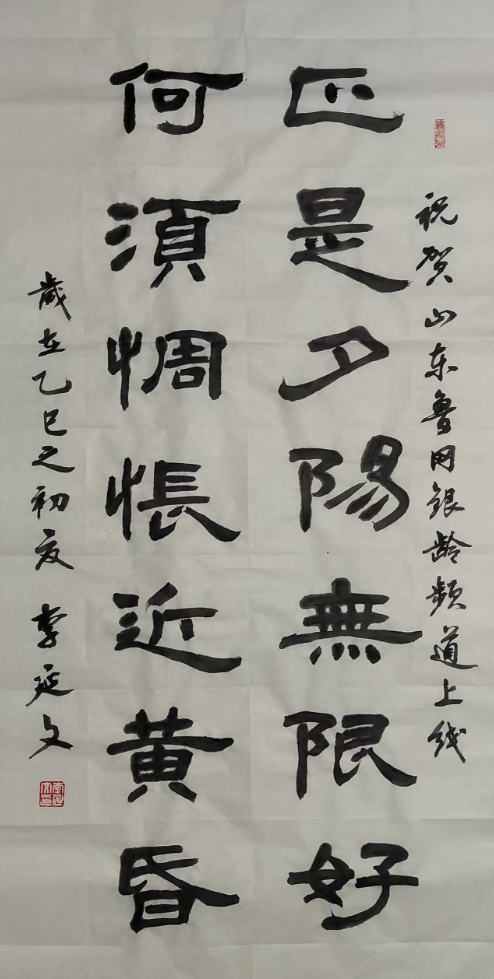 祝贺山东鲁网银龄频道上线
正是夕陽無限好
何須惆悵近黄昏
歲在乙巳之初夏 李延文